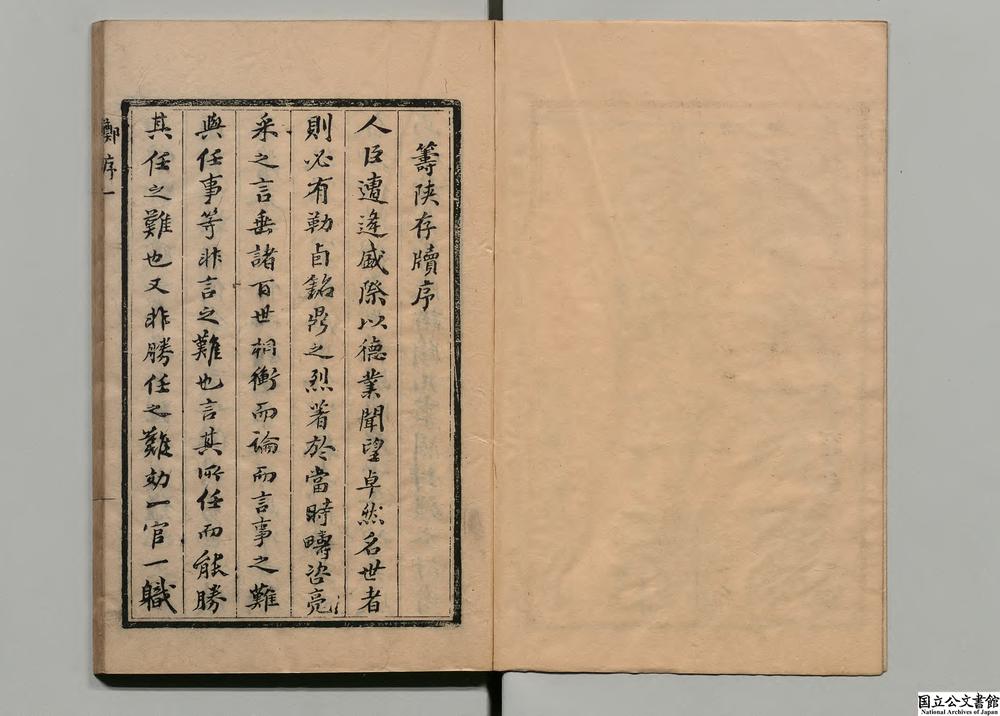 籌陝存牘序
人臣遭逢盛際以德業聞望卓然名世者
則必有勒卣銘鼎之烈著於當時疇咨亮
采之言垂諸百世相衡而論而言事之難
與任事等非言之難也言其所任而能勝
其任之難也又非勝任之難效一官一職
鄭序一
国立公文書館
National Archives of Japan